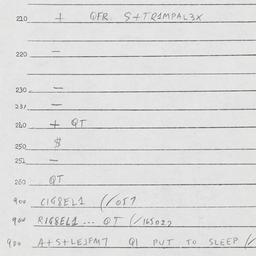 210 + QFR S+TR1MPAL3X
220 —
230 —
231 —
240 + QT
250 $
251 —
260 QT
900 CIG8EL1 (/057
900 RIG8EL1 ... QT (/165027
900 A+S+LEJFM7 QI PUT TO SLEEP (/